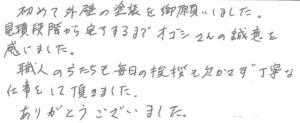 初めて外壁の塗装を御願いしました。
見積段階から完了するまでオゴシさんの誠意を
感じました。
職人の方たちも毎日の挨拶も欠かさず丁寧な
仕事をして頂きました。
ありがとうございました。